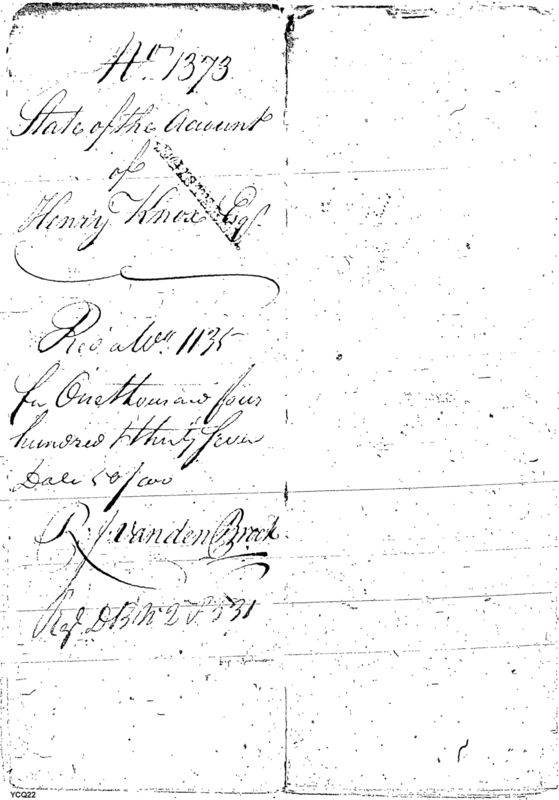 No. 1373
State of the Account
of
Henry Knox Esqr.
Rec'd a Wt. 1135
for One thousand four
hundred & thirty Seven
Dolls 50/100
R. J. VandenBroek
Regd. DB No 2 P 331
YCQ22